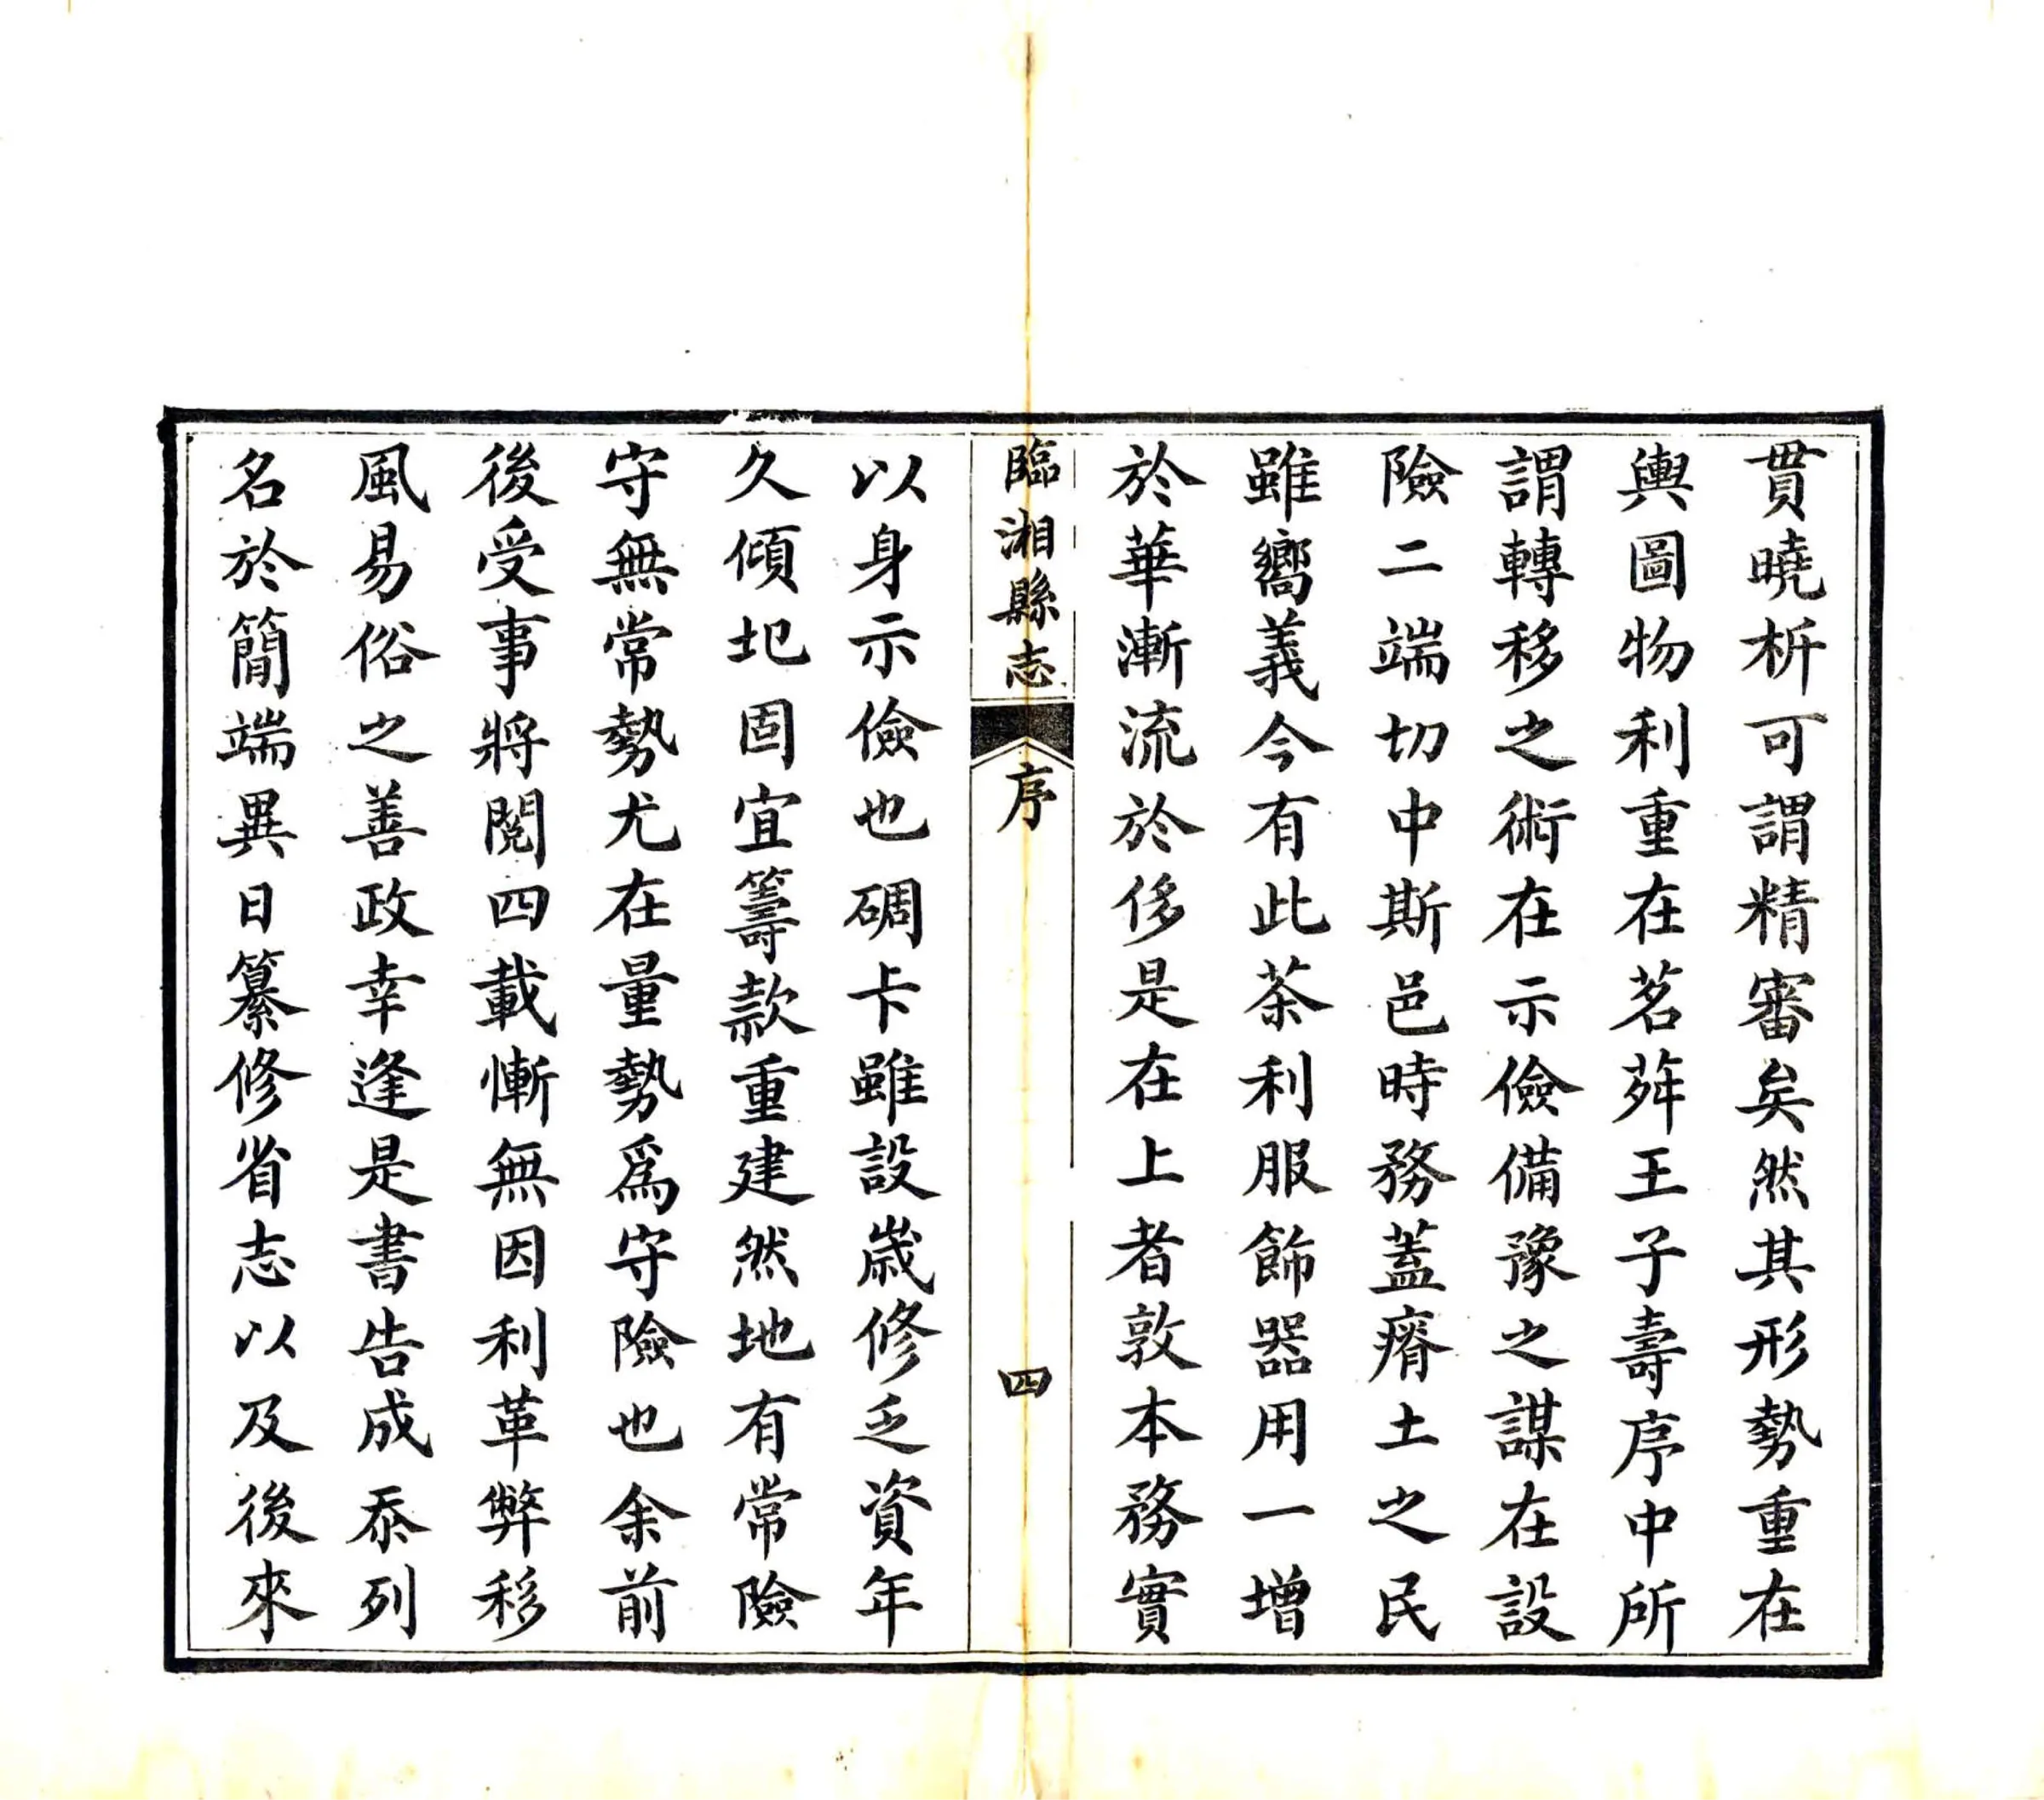 貫曉析可謂精審矣然其形勢重在
輿圖物利重在茗荈王子壽序中所
謂轉移之術在示儉備豫之謀在設
險二端切中斯邑時務蓋瘠土之民
雖嚮義今有此茶利服飾器用一增
於華漸流於侈是在上者敦本務實
臨湘縣志
序
四
以身示儉也碉卡雖設歲修乏資年
久傾圯固宜籌款重建然地有常險
守無常勢尤在量勢爲守險也余前
後受事將閱四載慚無因利革弊移
風易俗之善政幸逢是書告成忝列
名於簡端異日纂修省志以及後來